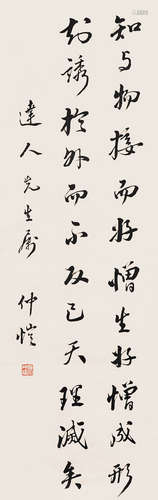 知与物接而好憎生好憎成形
知誘於外而不反己天理滅矣
達人先生属 仲愷